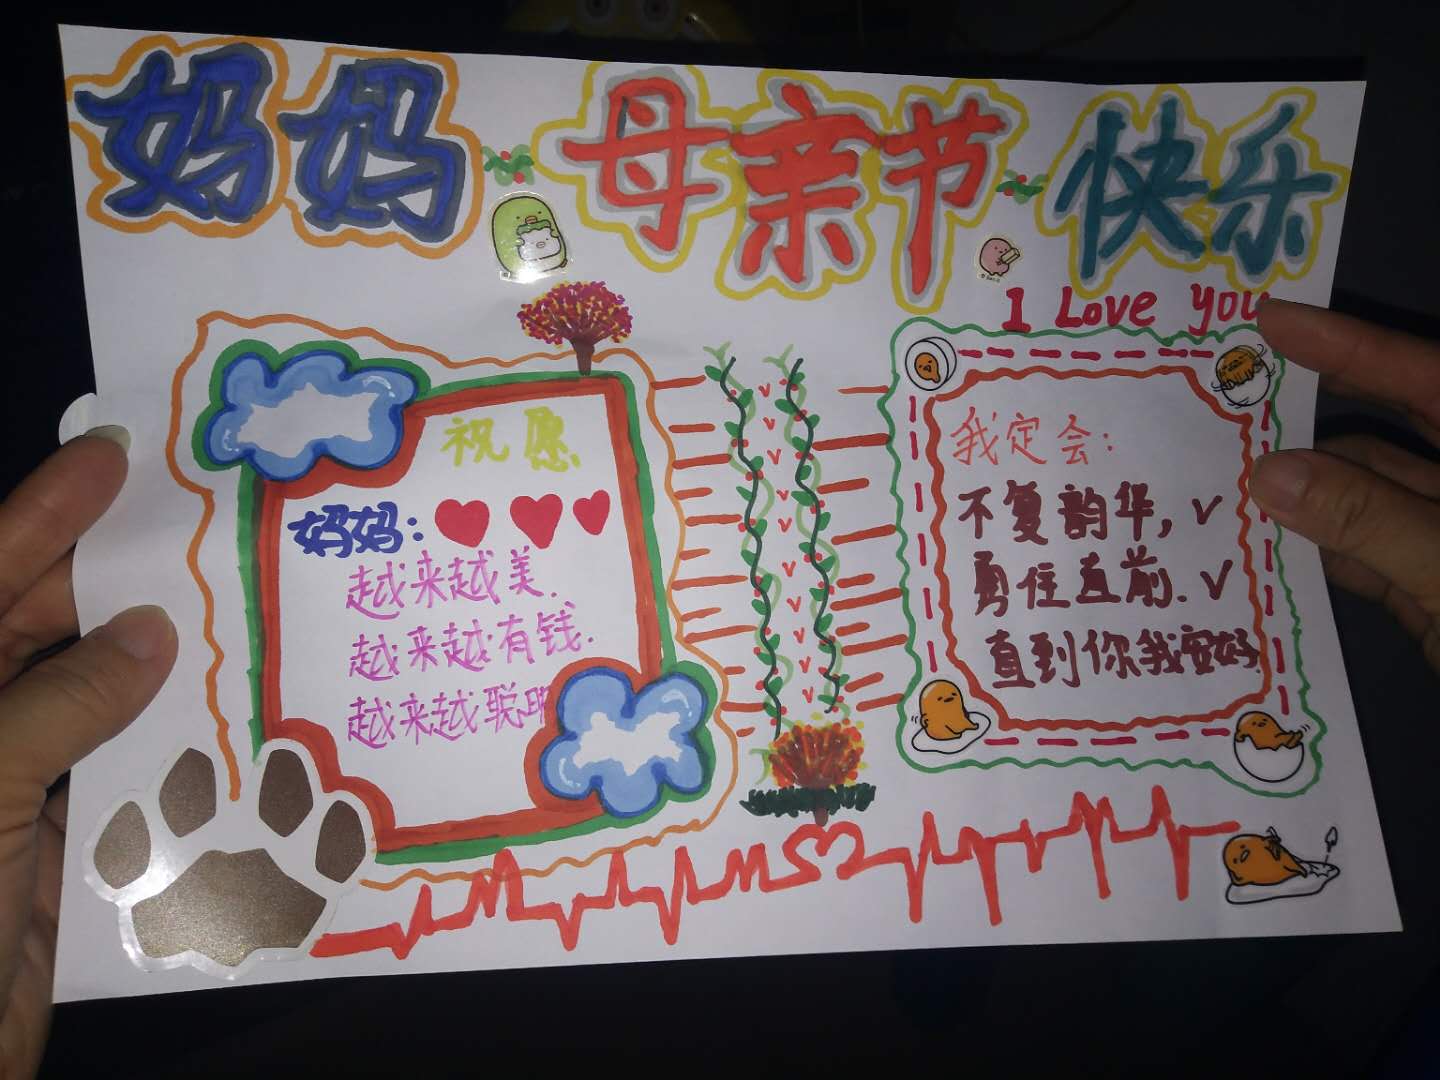 妈妈 母亲节 快乐
I Love you
祝愿
妈妈:
越来越美.
越来越有钱.
越来越聪明
我定会:
不复韵华,
勇住直前.
直到你我安好